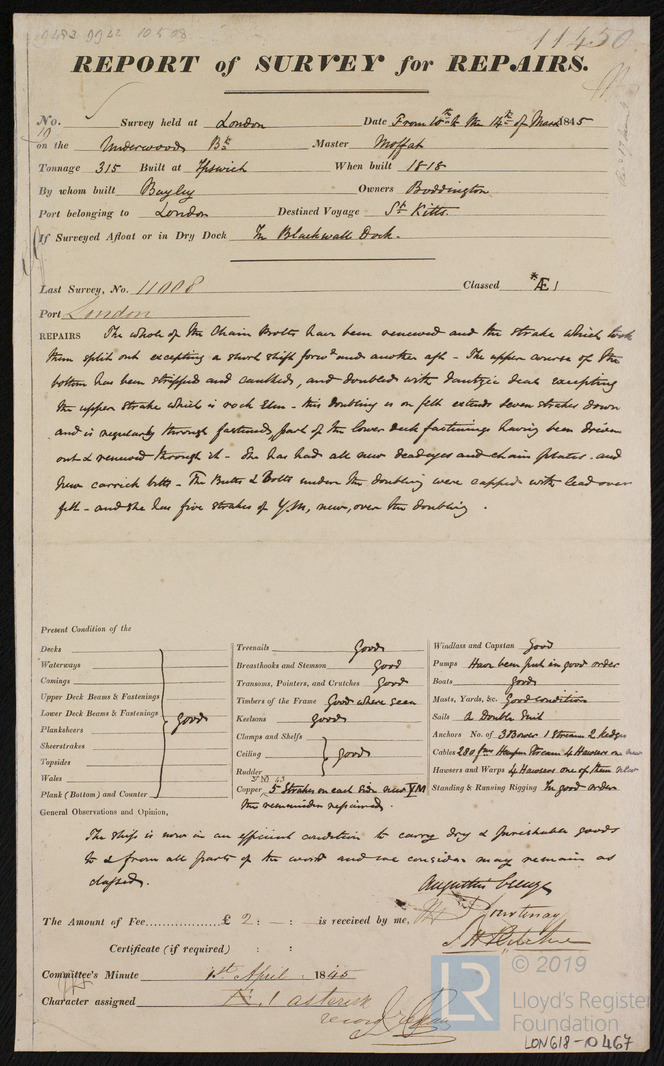 11450
REPORT of SURVEY for REPAIRS.
No. 10 Survey held at London Date From 10th to the 14th of March 1845
on the Underwood Bk the Master Moffat
Tonnage 315 Built at Ipswich When built 1818
By whom built Bayley Owners Boddington
Port belonging to London Destined Voyage St Kitts
If Surveyed Afloat or in Dry Dock In Blackwall Dock.
Last Survey, No. 11008 Classed *Æ 1
Port London
REPAIRS The whole of the Chain Bolts have been renewed and the strake which took
them split out excepting a short shift forwd and another aft - The upper course of the
bottom has been stripped and caulked, and doubled with dantzic deals excepting
the upper strake which is rock Elm - this doubling is on felt extends seven strakes down
and is regularly through fastened, part of the lower deck fastenings having been driven
out & renewed through it - She has had all new deadeyes and chain plates and
New carrick bitts - The Butts & Bolts under the doubling were capped with lead over
felt - and she has five strakes of Y.M, new, over the doubling.
Present Condition of the
Decks
Waterways
Comings
Upper Deck Beams & Fastenings
Lower Deck Beams & Fastenings good
Planksheers
Sheerstrakes
Topsides
Wales
Plank (Bottom) and Counter
Treenails Good
Breasthooks and Stemson good
Transoms, Pointers, and Crutches Good
Timbers of the Frame Good where seen
Keelsons goods
Clamps and Shelfs
Ceiling good
Rudder
Copper 5 Strakes on each side new YM
the remainder repaired.
Windlass and Capstan Good
Pumps Have been put in good order
Boats good
Masts, Yards, &c. Good condition
Sails A Double Suit
Anchors No. of 3 Bower 1 Stream 2 Kedges
Cables 280 fms Hempen Stream 4 Hawsers one new
Hawsers and Warps 4 Hawsers one of them new
Standing & Running Rigging In good order
General Observations and Opinion,
The ship is now in an efficient condition to carry dry & perishable goods
to & from all parts of the world and we consider may remain as
classed.
Augustin Creuze
Courtenay
J H Ritchie
The Amount of Fee................. £ 2 : — : — is received by me,
Certificate (if required) : :
Committee's Minute 1st April 1845
Character assigned 1 asterisk
© 2019
LR
Lloyd's Register
Foundation
LON618-10467